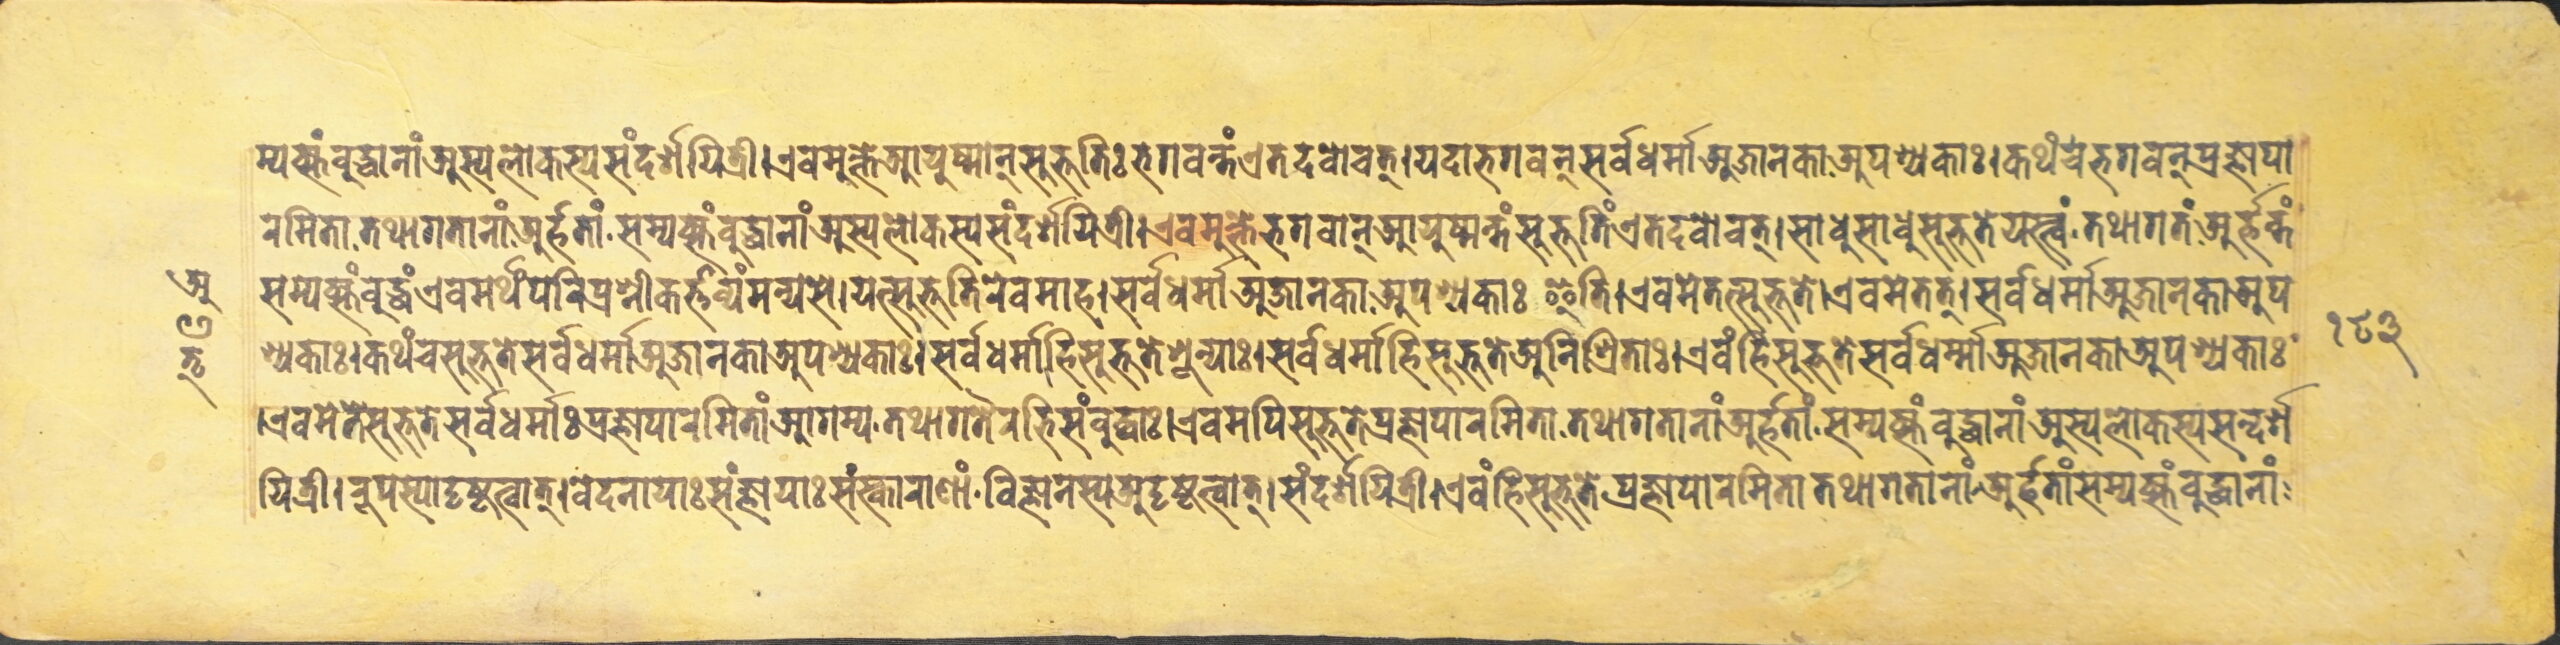 म्यक्संबुद्धानांअस्यलोकस्यसंदर्शयित्री।एवमुक्तेआयुष्मान्सुभूतिःभगवन्तंएतदवोचत्।यदाभगवन्सर्वधर्माअजानकाअपश्यकाः।कथंचभगवन्प्रज्ञापा
रमितातथागतानांअर्हतांसम्यक्संबुद्धानांअस्यलोकस्यसंदर्शयित्री।एवमुक्तेभगवान्आयुष्मन्तंसुभूतिंएतदवोचत्।साधुसाधुसुभूतेयस्त्वंतथागतंअर्हन्तं
सम्यक्संबुद्धंएवमर्थंपरिप्रश्नीकर्त्तव्यंमन्यसे।यत्सुभूतिरेवमाह।सर्वधर्माअजानकाअपश्यकाः इति।एवमेतत्सुभूते।एवमेतत्।सर्वधर्माअजानकाअप
श्यकाः।कथंचसुभूतेसर्वधर्माअजानकाअपश्यकाः।सर्वधर्माहिसुभूतेशून्याः।सर्वधर्माहिसुभूतेअनिश्रिताः।एवंहिसुभूतेसर्वधर्म्माअजानकाअपश्यकाः
।एवमेतेसुभूतेसर्वधर्माःप्रज्ञापारमितांआगम्यतथागतैरभिसंबुद्धाः।एवमपिसुभूतेप्रज्ञापारमितातथागतानांअर्हतांसम्यक्संबुद्धानांअस्यलोकस्यसन्दर्श
यित्री।रूपस्यादृष्टत्वात्।वेदनायाःसंज्ञायाःसंस्काराणांविज्ञानस्यअदृष्टत्वात्।संदर्शयित्री।एवंहिसुभूतेप्रज्ञापारमितातथागतानांअर्हतांसम्यक्संबुद्धानां
१८३